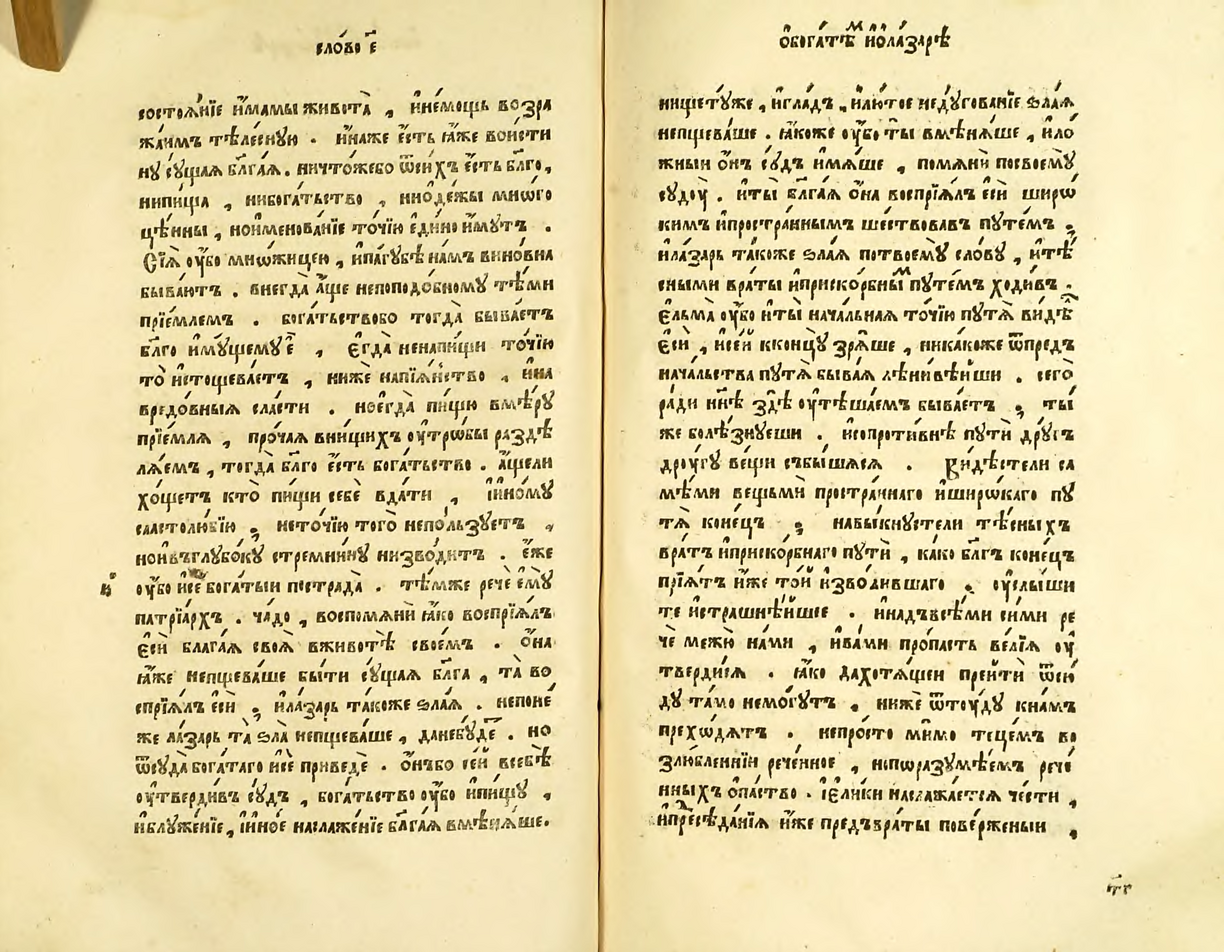 сло́во є҃
состоѧ́нїе и҆́мамы живота̀ , и҆не́мощь возра
жа́имъ тѣле́сную . и҆на́же є҆́сть ꙗ҆́же вои́сти
ну су́щаѧ бл҃га́ѧ . ничто́жебо ѿси́хъ є҆́сть бл҃го ,
нипи́ща , нибога́тьство , ниѻ҆де́жы мно́го
цѣ́нны , ноименова́нїе то́чїю є҆ди́но и҆́мутъ .
Сїѧ̀ оу҆́бо мно́жицею , и҆па́губѣ на́мъ вино́вна
быва́ютъ . внегда̀ а҆́ще неполодо́бному тѣ́ми
прїе́млемъ . бога́тьствобо тогда̀ быва́етъ
бл҃го и҆му́щему є҆̀ , є҆гда̀ ненапи́щи то́чїю
то̀ и҆стощева́етъ , ни́же напїѧ́нство , и҆на
вредо́вныѧ сла́сти . ноегда̀ пи́щю вмѣ́ру
прїе́млѧ , про́чаѧ вни́щихъ оу҆тро́бы раздѣ
лѧ́емъ , тогда̀ бл҃го є҆́сть бога́тьство . а҆́щели
хо́щетъ кто̀ пи́щи себѐ вда́ти , и҆и҆но́му
сластолю́бїю , неточїю того̀ непо́льзуетъ ,
нои҆въглубо́ку стремни́ну низво́дитъ . є҆́же
оу҆́бо и҆сѐ бога́тыи пострада̀ . тѣ́мже речѐ є҆му̀
патрїа́рхъ . ча́до , воспомѧнѝ ꙗ҆́ко воспрїѧ́лъ
є҆сѝ блага́ѧ своѧ̀ вживотѣ̀ свое́мъ . ѻ҆на̀
ꙗ҆́же непщева́ше бы́ти су́щаѧ бл҃га , та̀ во
спрїѧ́лъ є҆сѝ , и҆ла́зарь тако́же ѕла́ѧ . непоне́
же ла́зарь та̀ ѕла̀ непщева́ше , данебу́де . но
ѿсу́да бога́таго и҆сѐ приведѐ . ѻ҆́нъбо се́й всебѣ̀
оу҆тверди́въ су́дъ , бога́тьство оу҆́бо и҆пи́щу ,
и҆блуже́нїе , и҆и҆но́е наслаже́нїе бл҃га́ѧ вмѣнѧ́ше .
ѻ҆бога́тѣмъ и҆ѻ҆ла́зарѣ
нищету́же , и҆гла́дъ , и҆лю́тое неду́гованїе ѕла́ѧ
непщева́ше . ꙗ҆́коже оу҆́бо ты̀ вмѣнѧ́ше , и҆ло
жныи ѻ҆́нъ су́дъ и҆мѧ́ше , помѧнѝ посвоему̀
судоу̀ . и҆ты̀ бл҃га́ѧ ѻ҆на̀ воспрїѧ́лъ є҆сѝ широ́
кимъ и҆простра́ннымъ ше́ствовавъ путе́мъ ,
и҆ла́зарь тако́же ѕла́ѧ потвоему̀ сло́ву , и҆тѣ́
сными враты̀ и҆приско́рбнымъ путе́мъ ходи́въ .
є҆льма̀ оу҆́бо и҆ты̀ нача́льнаѧ то́чїю путѧ̀ ви́дѣ
є҆сѝ , и҆се́й кконцу̀ зрѧ́ше , ника́коже ѿпредъ
нача́льства путѧ̀ быва́ѧ лѣни́вѣиши . сего̀
ра́ди нн҃ѣ здѣ̀ оу҆тѣша́емъ быва́етъ , ты́
же болѣ́знуеши . и҆сопроти́внѣ путѝ дру́гъ
дроу́гу ве́щи събы́шасѧ . Ви́дѣстели са
мѣ́ми вещьмѝ простра́ннаго и҆широ́каго пу
тѧ̀ коне́цъ , навы́кнустели тѣ́сныхъ
вра́тъ и҆приско́рбнаго путѝ , ка́ко бл҃гъ коне́цъ
прїѧ́тъ и҆́же то́й и҆зво́лившаго . оу҆слы́ши
те и҆страшнѣ́йшее . и҆надъвсѣ́ми си́ми ре
чѐ межю̀ на́ми , и҆ва́ми про́пасть ве́лїѧ оу҆
тверди́сѧ . ꙗ҆́ко дахотѧ́щеи прейтѝ ѿсю́
ду та́мо немо́гутъ . ни́же ѿтоу́ду кна́мъ
прехо́дѧтъ . непро́сто ми́мо тече́мъ во
злю́бленнїи рече́нное , ноиѡразумѣ́емъ рече́
нныхъ ѻ҆па́ство . и҆є҆ли́ки наслажа́етсѧ че́сти ,
и҆пресѣ́данїѧ и҆́же предъвра́ты пове́рженыи ,